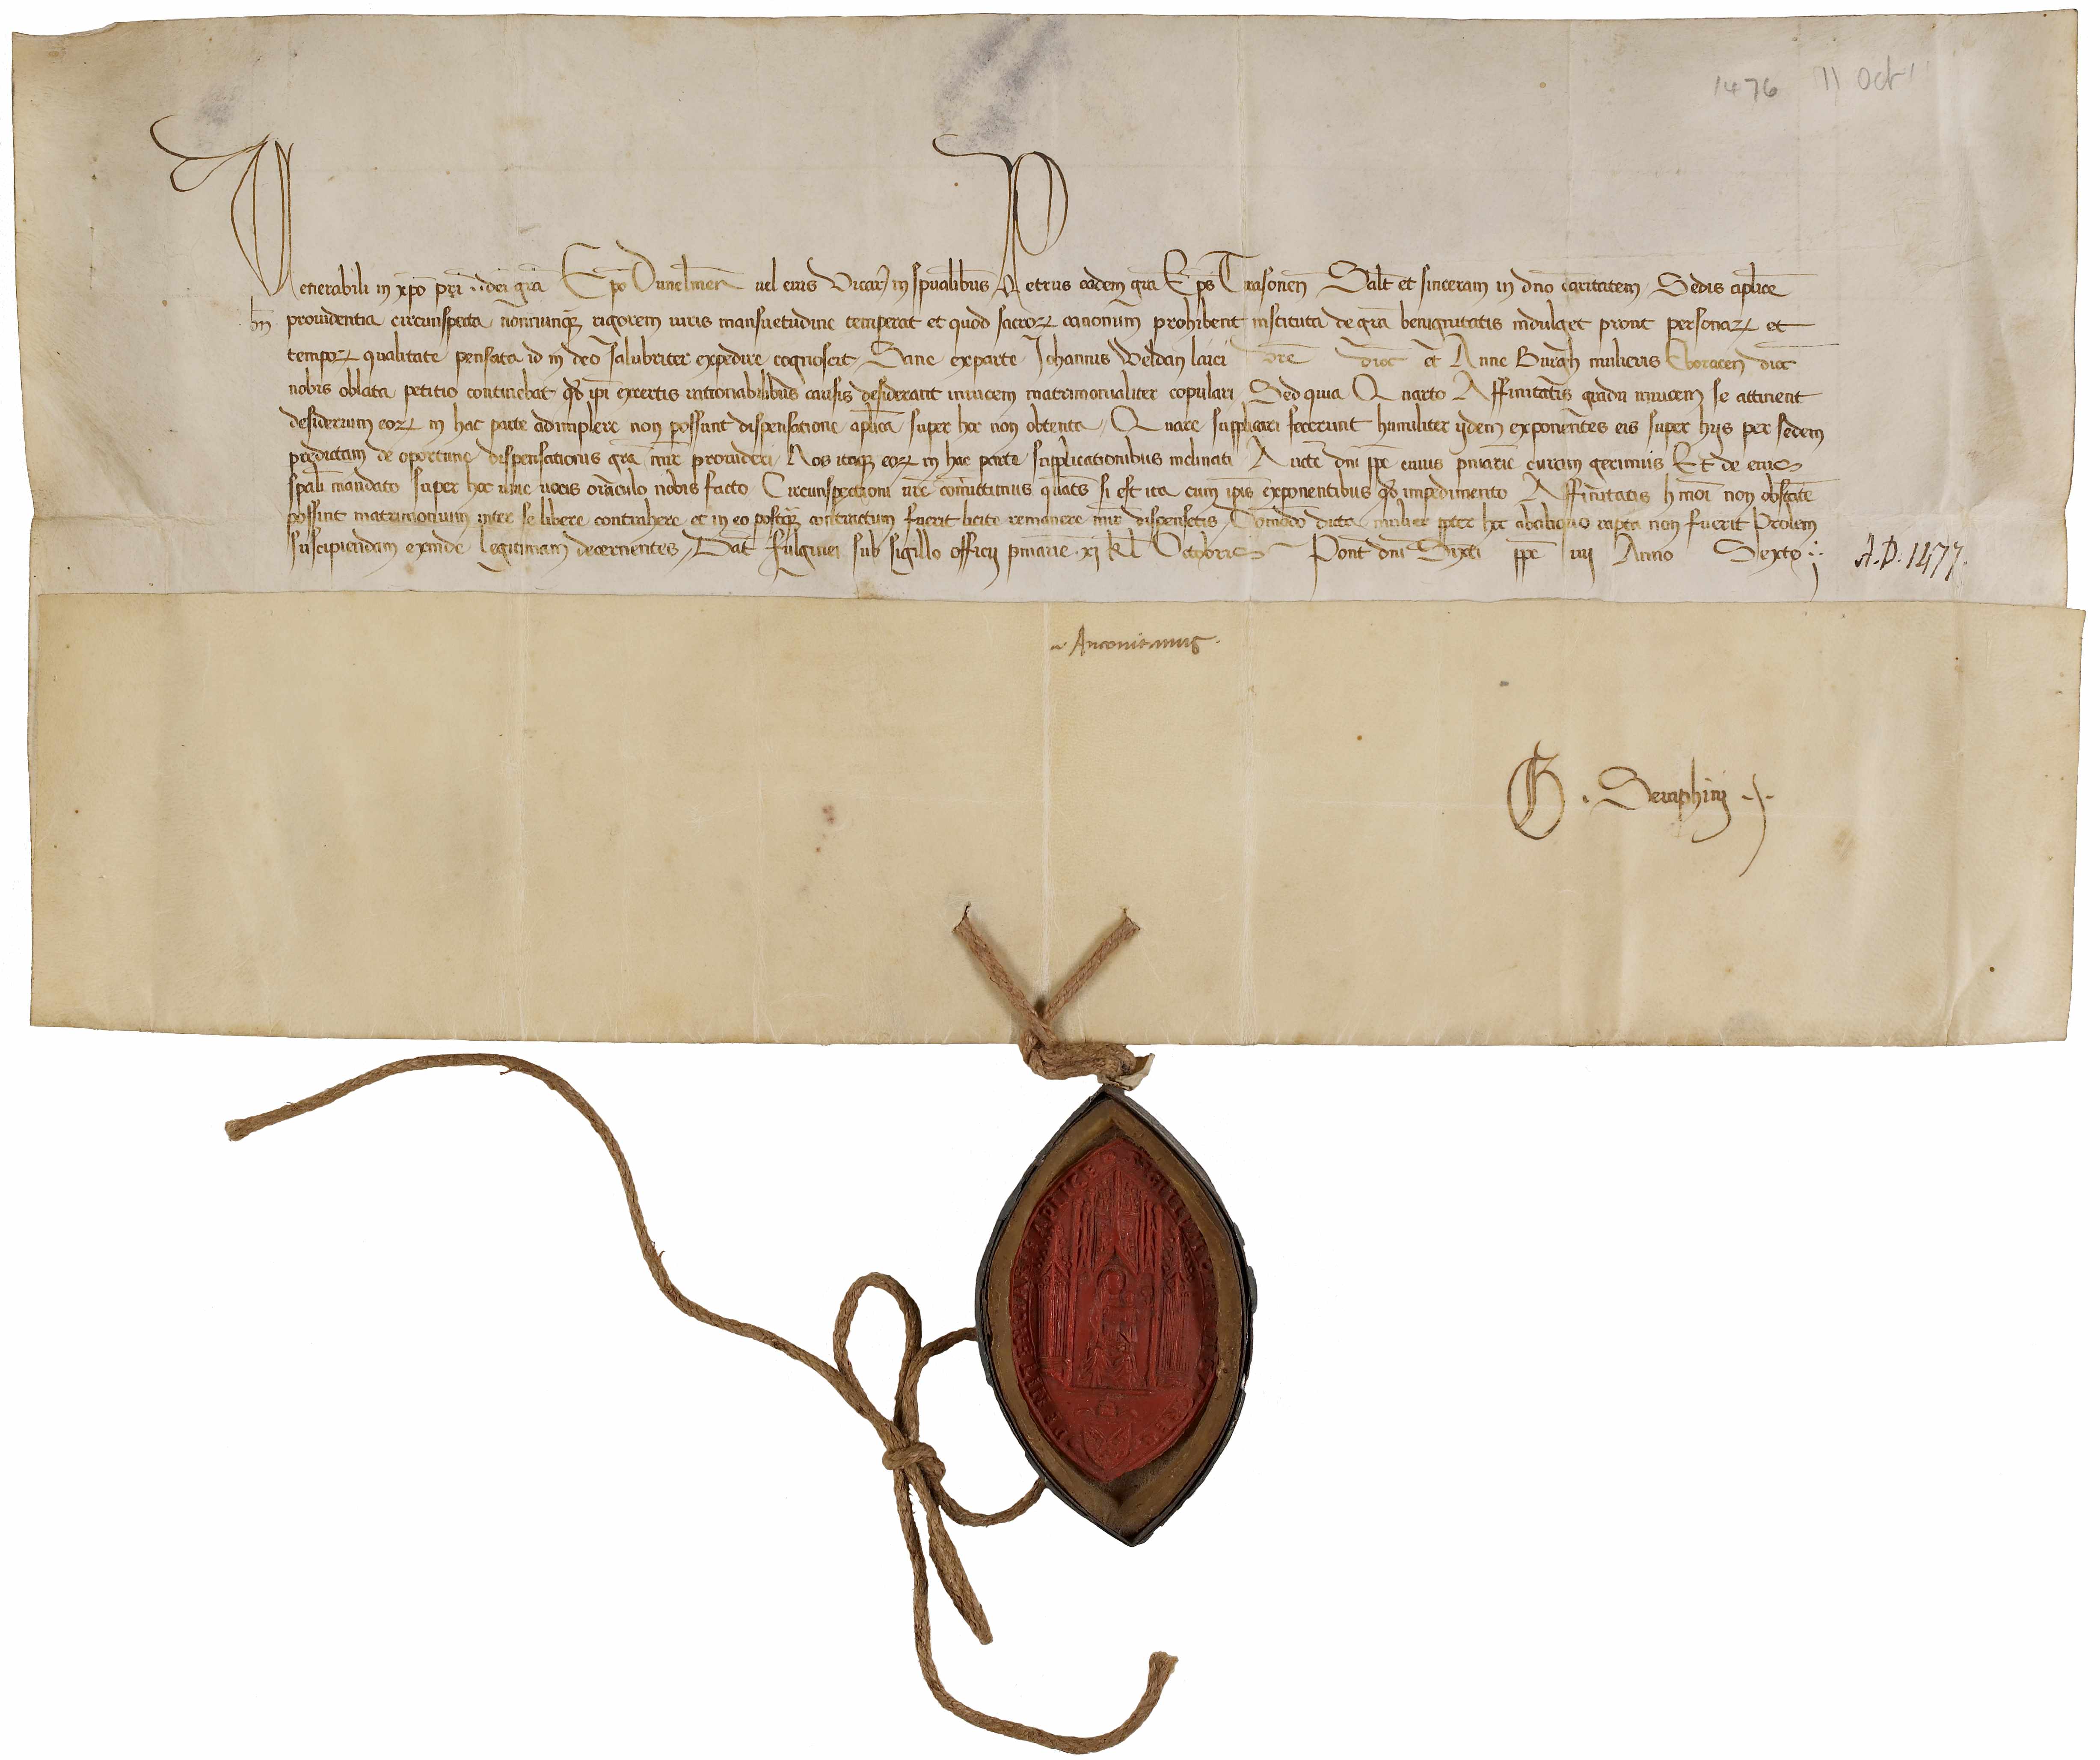 1476 11 Oct
Venerabili in xpo pri dei gra Epo Dunelmen uel eius Vicario in spualibus Petrus eadem gra Eps Tirasonen Salt et sinceram in dno caritatem Sedis aplice
prouidentia circunspecta nonnunqꝫ rigorem iuris mansuetudine temperat et quod sacroꝝ canonum prohibent instituta de gra benignitatis indulget prout personaꝝ et
tempoꝝ qualitate pensata id in deo salubriter expedire cognoscit Sane ex parte Johannis Weldan laici vre dioc et Anne Burgh mulieris Eboracen dioc
nobis oblata petitio continebat qd ipi ex certis rationabilibus causis desiderant inuicem matrimonialiter copulari Sed quia Quarto Affinitatis gradu inuicem se attinent
desiderium eoꝝ in hac parte adimplere non possunt dispensatione aplica super hoc non obtenta Quare supplicari fecerunt humiliter ijdem exponentes eis super hijs per sedem
predictam de oportune dispensationis gra mir prouideri Nos itaqꝫ eoꝝ in hac parte supplicationibus inclinati Aucte dni ppe cuius pniarie curam gerimus Et de eius
spali mandato super hoc uiue uocis oraculo nobis facto Circunspectioni vre comittimus quats si est ita cum ipis exponentibus qd impedimento Affinitatis hmoi non obstante
possint matrimonium inter se libere contrahere et in eo postqꝫ contractum fuerit licite remanere mir dispensetis Dumodo dicta mulier ppter hoc ab aliquo rapta non fuerit Prolem
suscipiendam exinde legitimam decernentes Dat Fulginei sub sigillo officij pniarie xj kl Octobris Pont dni Sixti ppe iiij Anno Sexto A.D. 1477.
Antonianus
G. Seraphinj